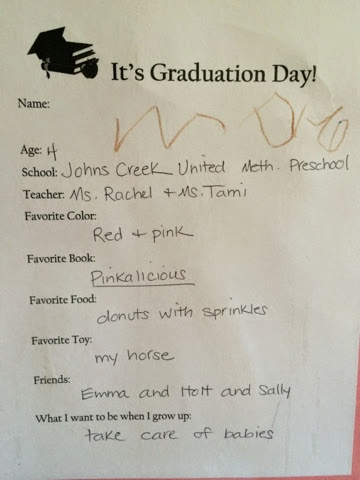 It's Graduation Day!
Name:
Age: 4
School: Johns Creek United Meth. Preschool
Teacher: Ms. Rachel + Ms. Tami
Favorite Color:
Red + pink
Favorite Book:
Pinkalicious
Favorite Food:
donuts with sprinkles
Favorite Toy:
my horse
Friends:
Emma and Holt and Sally
What I want to be when I grow up:
take care of babies